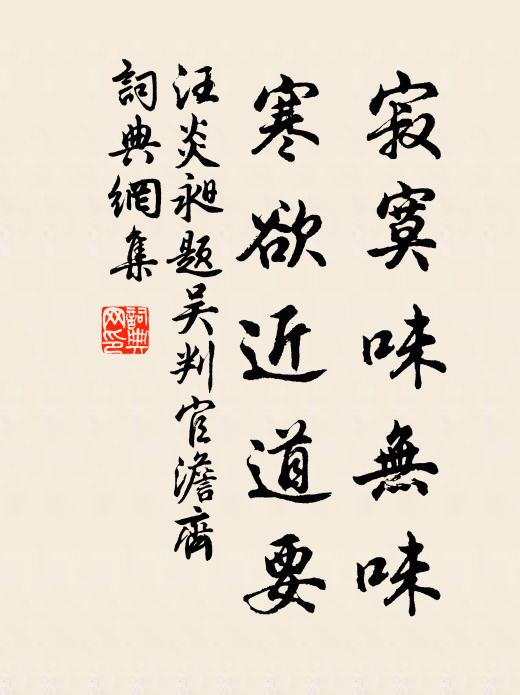 寂寞味無味
寒欲近道要
汪炎昶題吴判官澹齋
詞典網集
詞典網印